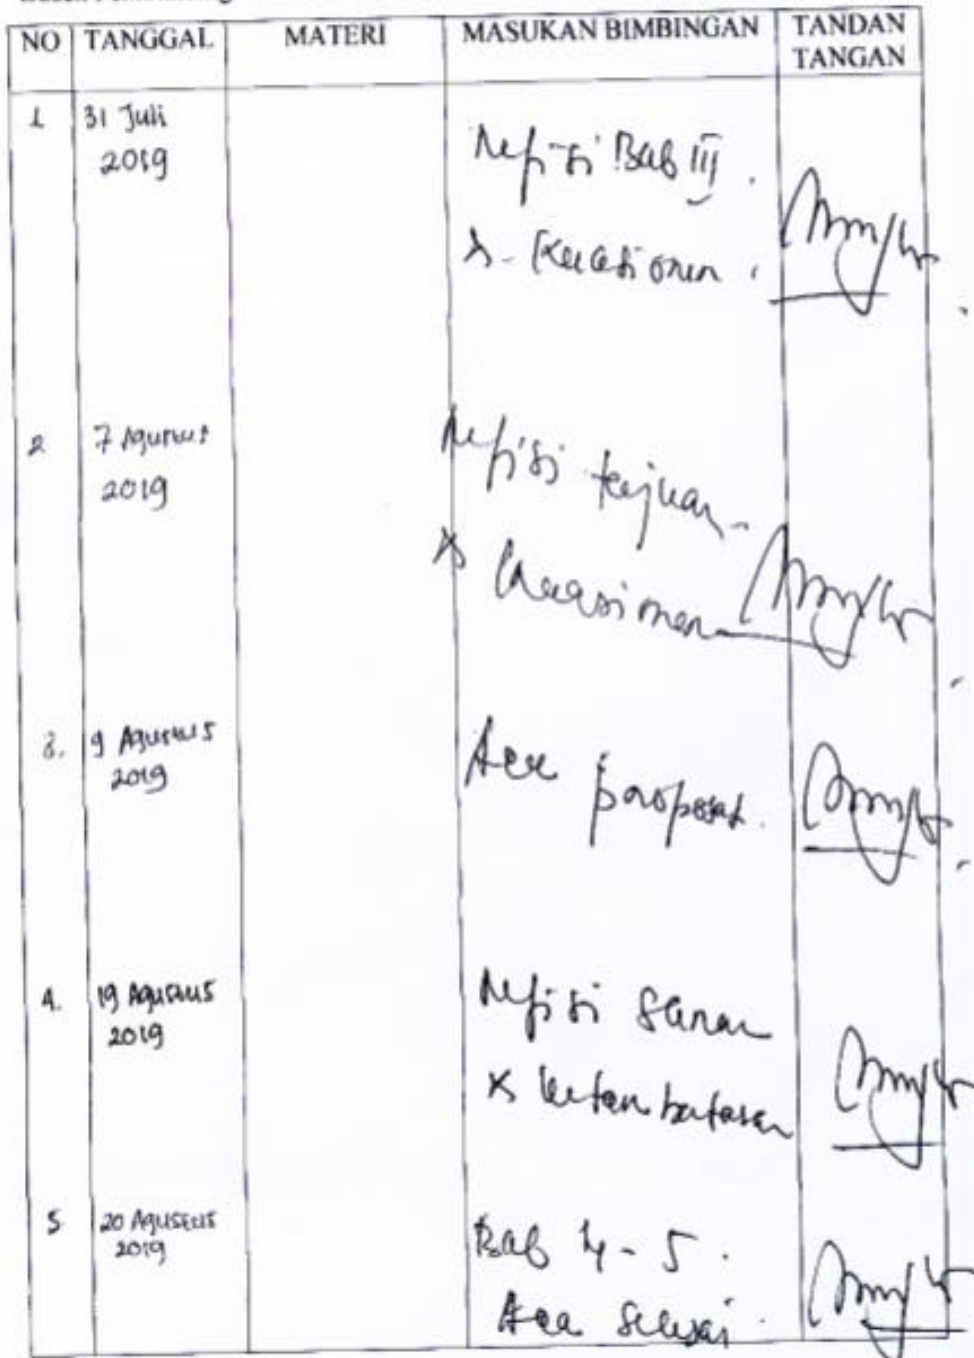 NO TANGGAL MATERI MASUKAN BIMBINGAN TANDAN TANGAN
1 31 Juli
2019
Refisi Bab III.
& Kuesioner.
2 7 Agustus
2019
Refisi tujuan
& Kuesioner
3. 9 Agustus
2019
Acc proposal.
4. 19 Agustus
2019
Refisi Saran
& keterbatasan
5 20 Agustus
2019
Bab 4-5.
Acc Selesai.